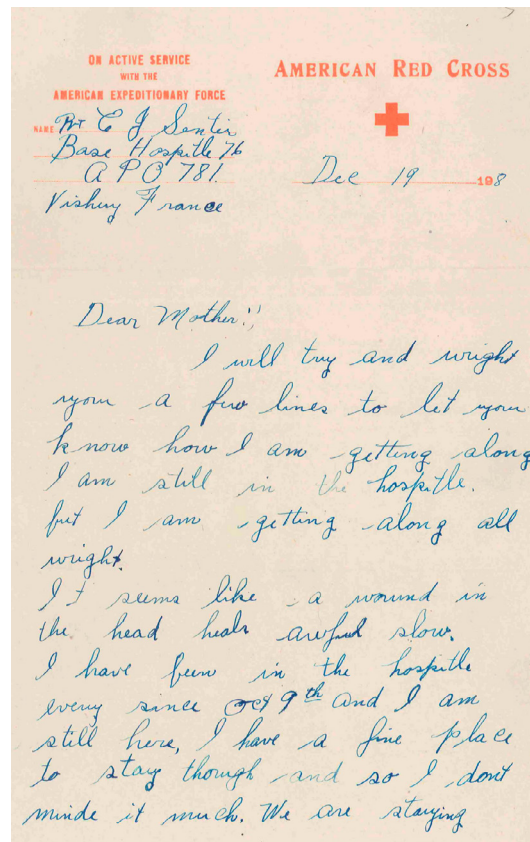 ON ACTIVE SERVICE
WITH THE
AMERICAN EXPEDITIONARY FORCE
AMERICAN RED CROSS
NAME Pvt C J Senti
Base Hospitle 76
A P O 781.
Vishuy France
Dec 19 198
Dear Mother!,
I will try and wright
your a few lines to let your
know how I am getting along
I am still in the hospitle.
but I am getting along all
wright.
It seems like a wound in
the head heals awful slow.
I have been in the hospitle
every since Oct 9th and I am
still here, I have a fine place
to stay though and so I dont
minde it much. We are staying